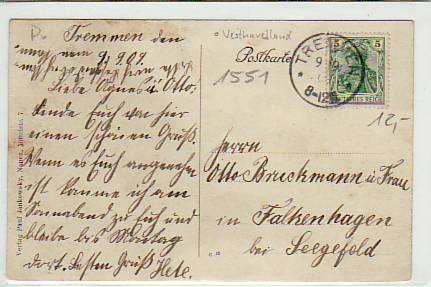 Tremmen den
9.9.09.
Liebe Agnes u. Otto!
Sende Euch von hier
einen schönen Gruß.
Wenn es Euch angenehm
ist komme ich am
Sonnabend zu Euch und
bleibe bis Montag
dort. Besten Gruß Hete.
Westhavelland
Postkarte
1551
TREMMEN
8-12
5 5
DEUTSCHES REICH
12,-
Herrn
Otto Bruckmann u. Frau
in Falkenhagen
bei Seegefeld
Verlag Paul Jankowsky, Nauen,